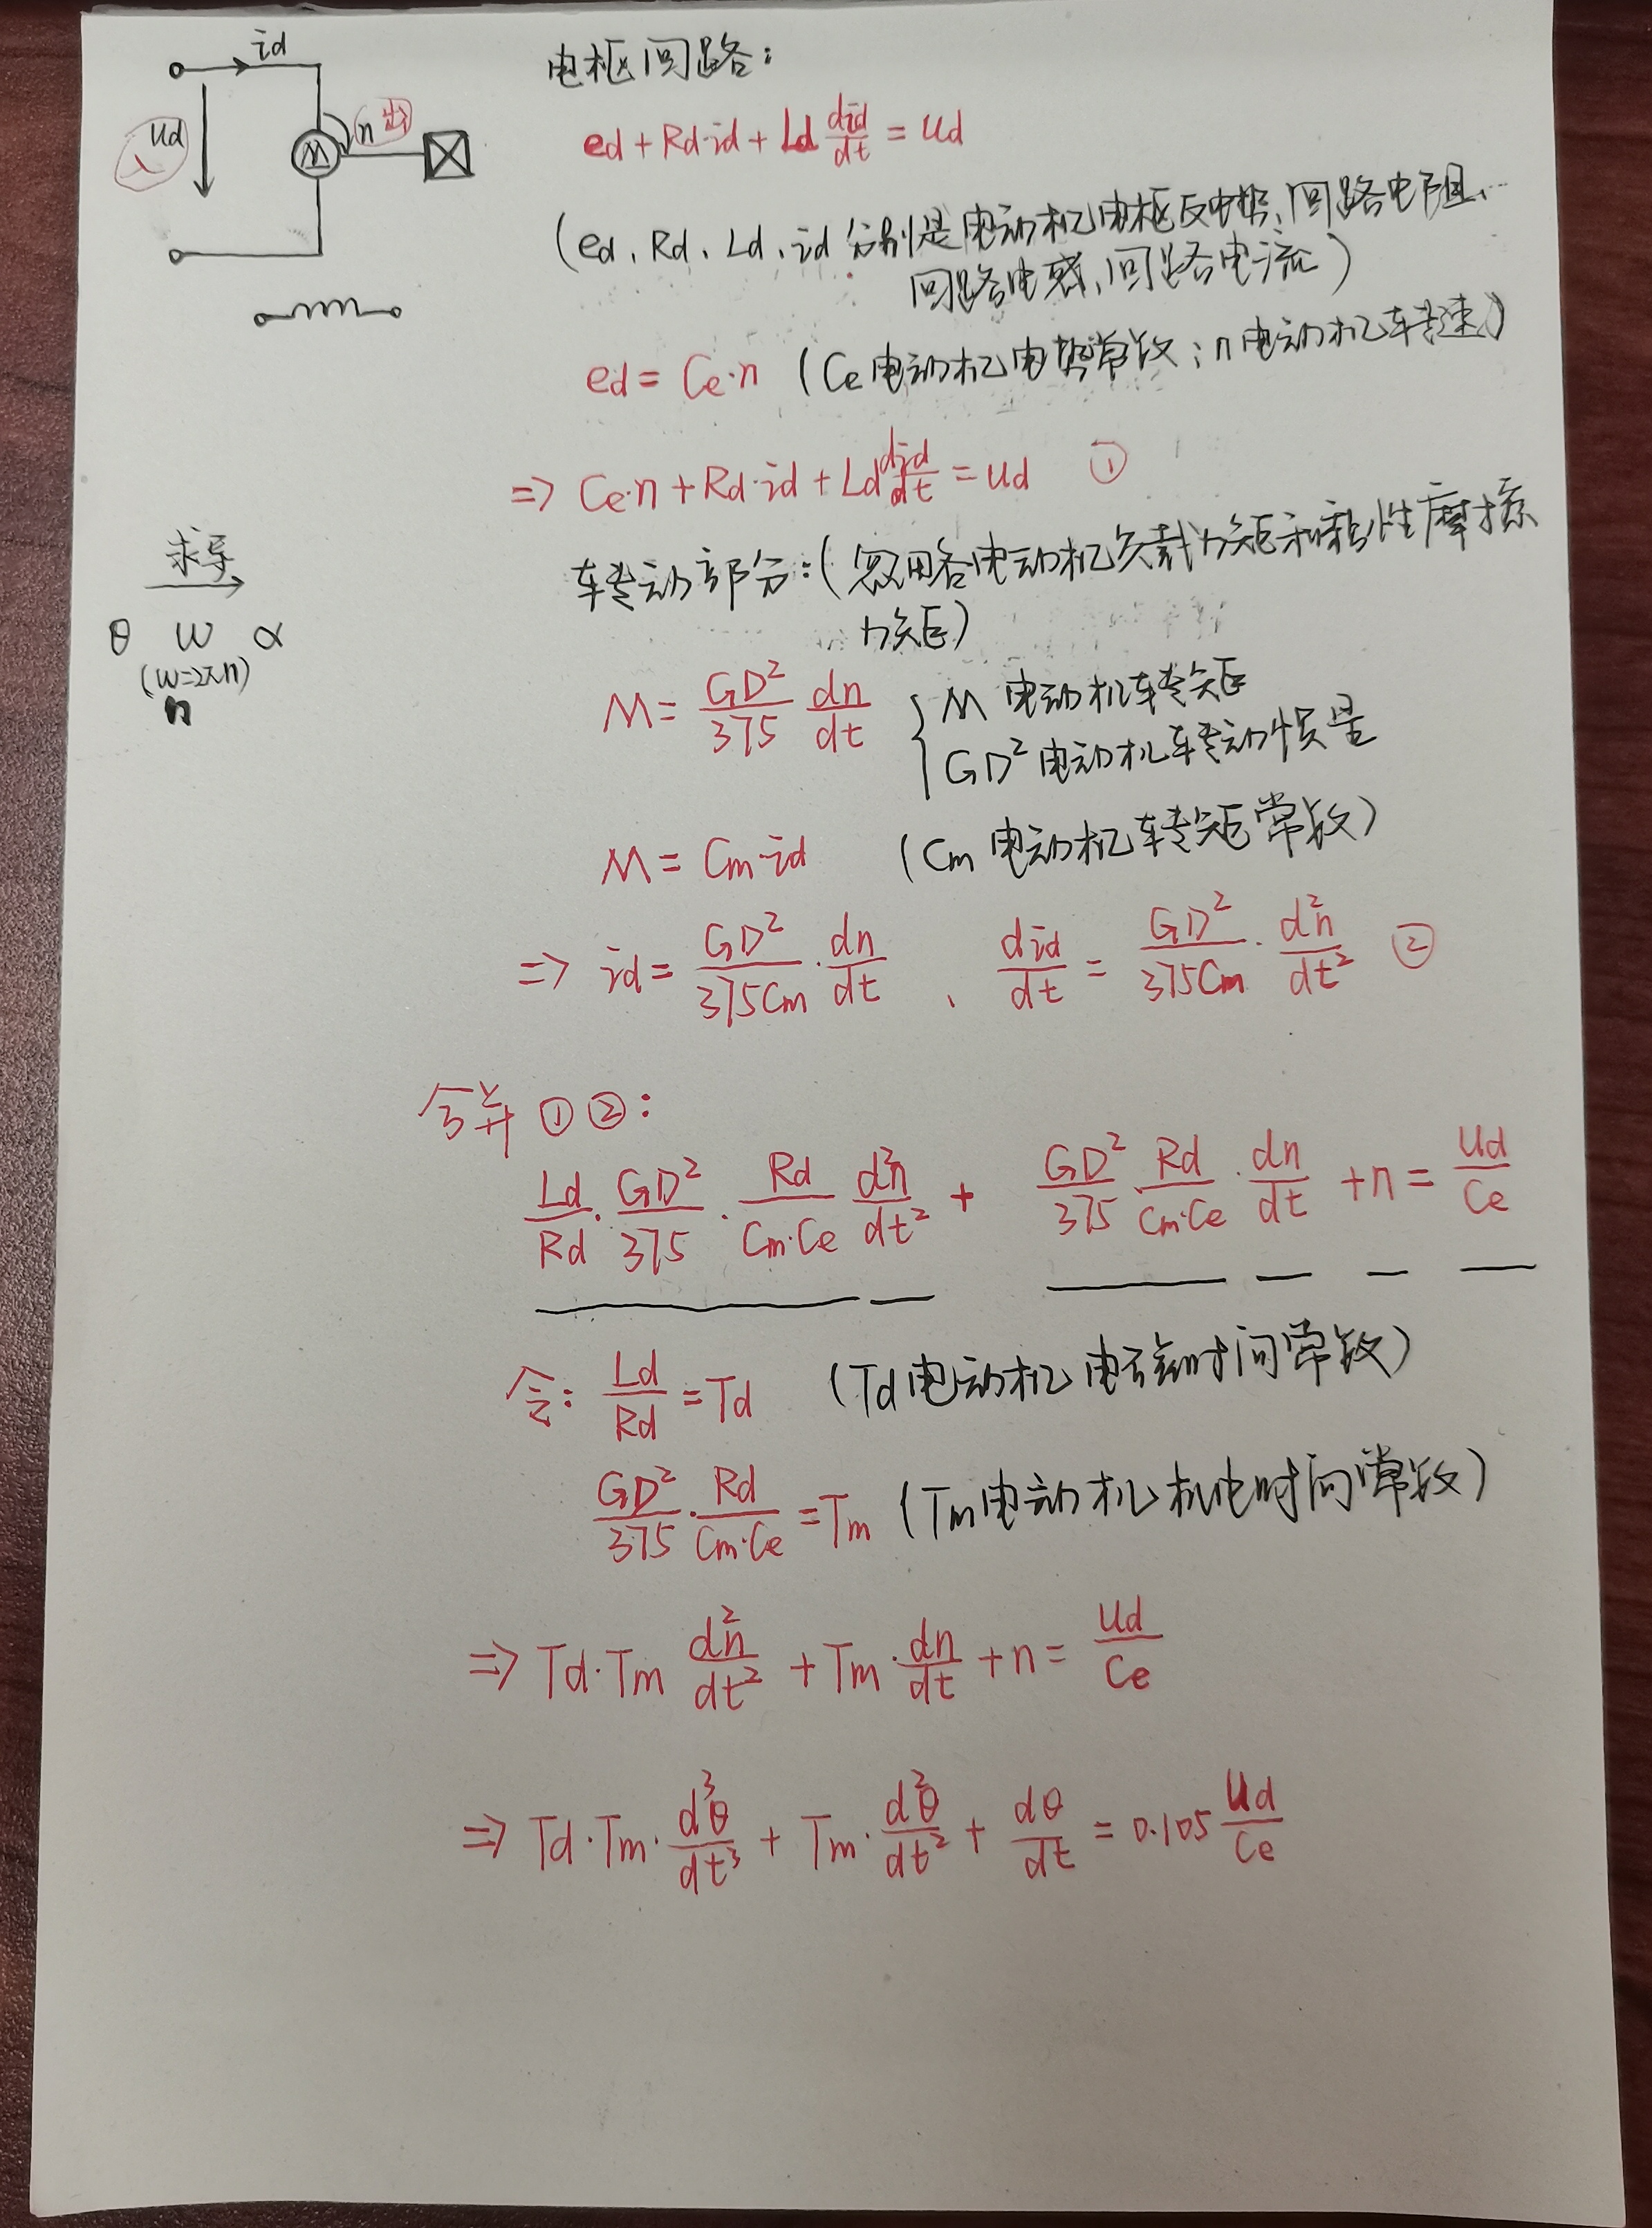 id
ud
入
M
n
出
电枢回路:
ed + Rd·id + Ld did/dt = ud
(ed、Rd、Ld、id 分别是电动机电枢反电势、回路电阻、
回路电感、回路电流)
ed = Ce·n (Ce 电动机电势常数；n 电动机转速)
=> Ce·n + Rd·id + Ld did/dt = ud ①
求导
θ ω α
(ω=2πn)
n
转动部分:(忽略电动机负载力矩和粘性摩擦
力矩)
M = GD²/375 dn/dt { M 电动机转矩
GD² 电动机转动惯量
M = Cm·id (Cm 电动机转矩常数)
=> id = GD²/375Cm · dn/dt 、 did/dt = GD²/375Cm · d²n/dt² ②
合并 ① ②:
Ld/Rd · GD²/375 · Rd/Cm·Ce d²n/dt² + GD²/375 Rd/Cm·Ce · dn/dt + n = ud/Ce
令: Ld/Rd = Td (Td 电动机 电磁时间常数)
GD²/375 · Rd/Cm·Ce = Tm (Tm 电动机 机电时间常数)
=> Td·Tm d²n/dt² + Tm · dn/dt + n = ud/Ce
=> Td·Tm · d³θ/dt³ + Tm · d²θ/dt² + dθ/dt = 0.105 ud/Ce